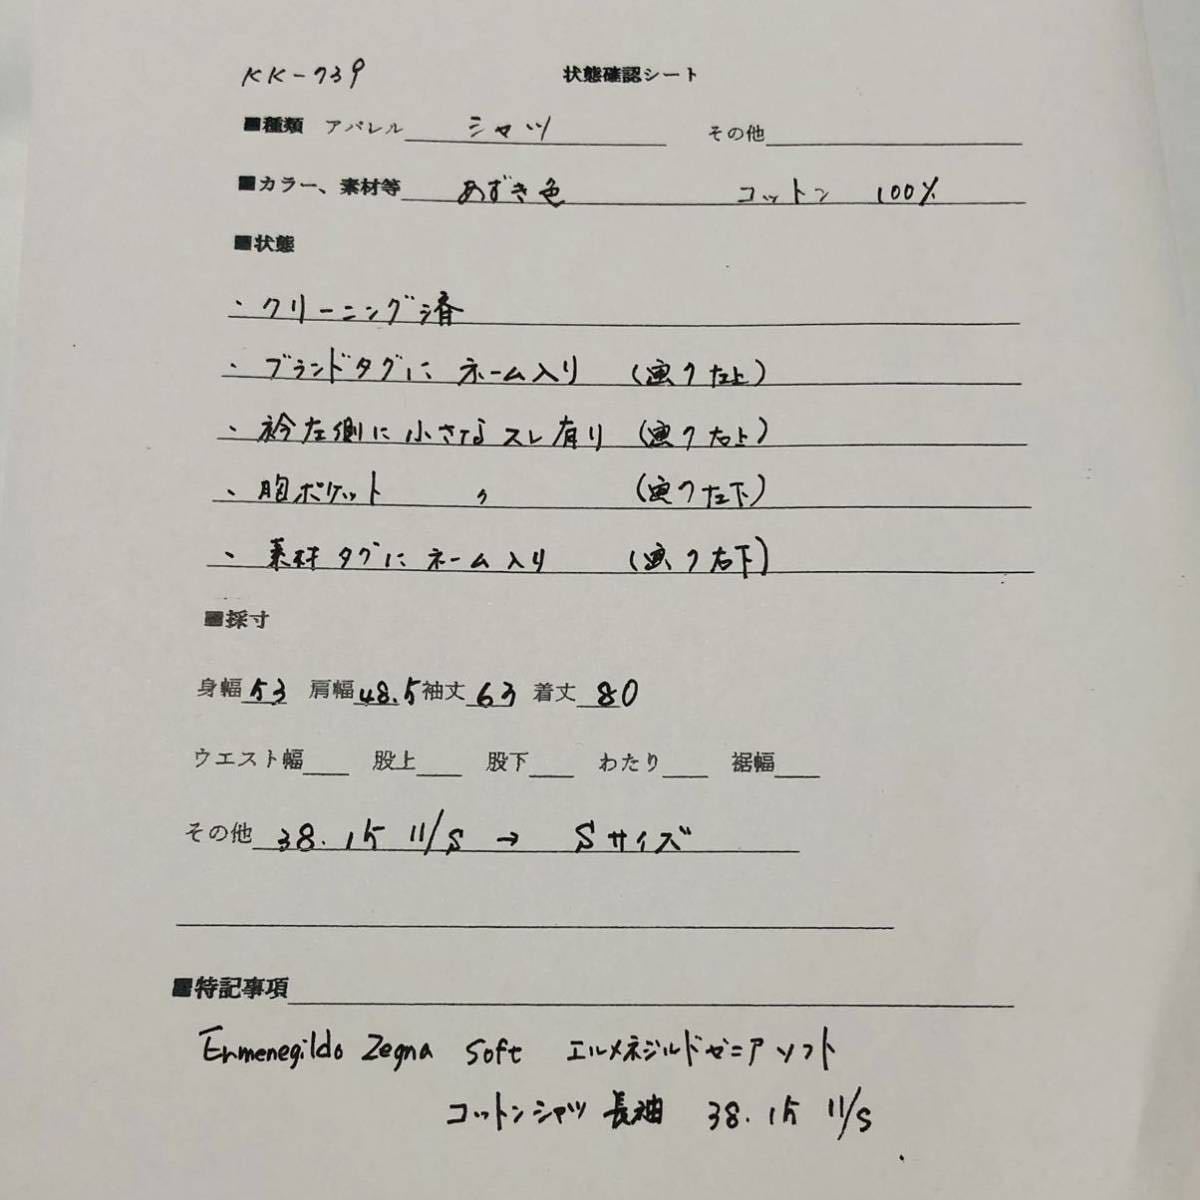 KK-739 状態確認シート
■種類 アパレル シャツ その他
■カラー、素材等 あずき色 コットン 100%
■状態
・クリーニング済
・ブランドタグに ネーム入り (画ク左上)
・衿左側に小さなスレ有り (画ク右上)
・胸ポケット 〃 (画ク左下)
・素材タグにネーム入り (画ク右下)
■採寸
身幅 53 肩幅 48.5 袖丈 63 着丈 80
ウエスト幅 股上 股下 わたり 裾幅
その他 38.15 11/S → Sサイズ
■特記事項
Ermenegildo Zegna Soft エルメネジルドゼニア ソフト
コットンシャツ 長袖 38.15 11/S